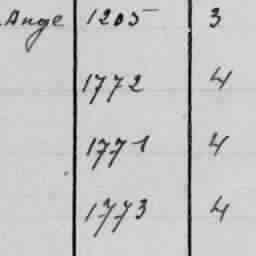 Ange 1205 3
1772 4
1771 4
1773 4